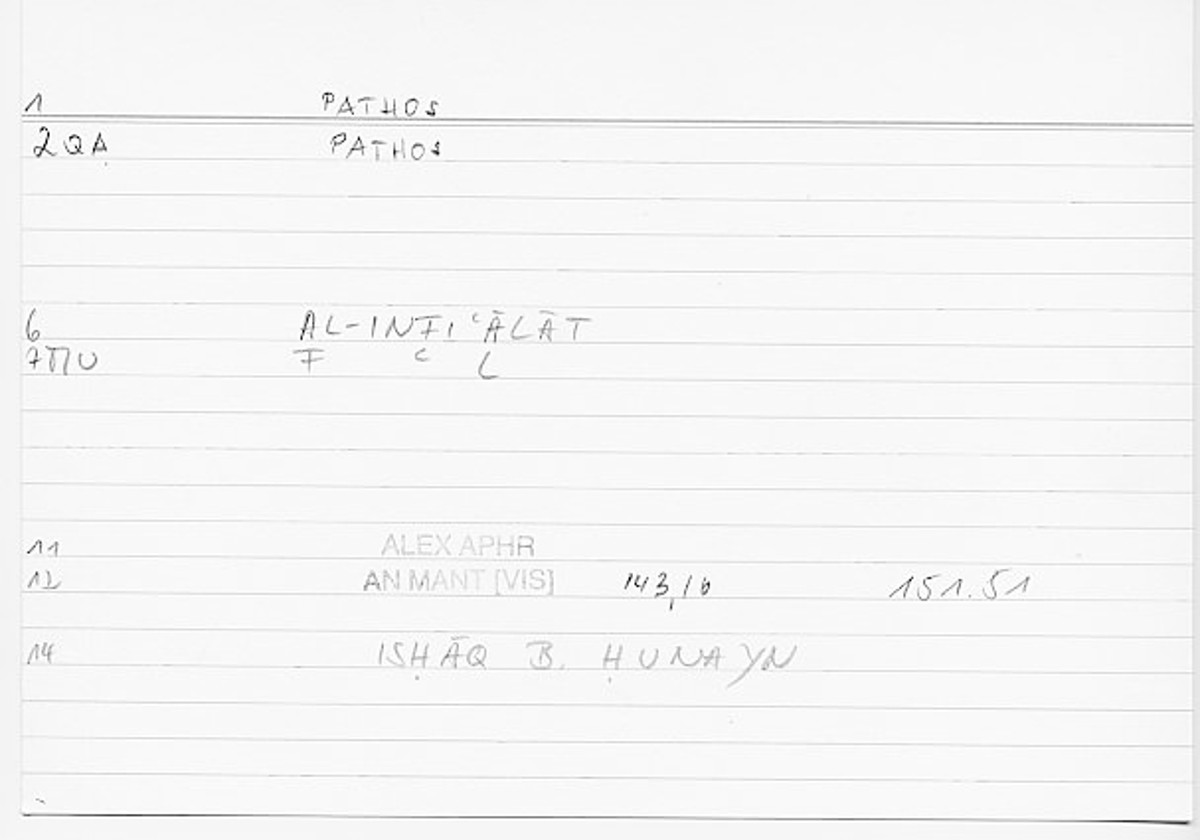 1 PATHOS
2QA PATHOS
6 AL-INFIʿĀLĀT
F ʿ L
11 ALEX APHR
12 AN MANT [VIS] 143,16 151.51
14 ISḤĀQ B. ḤUNAYN